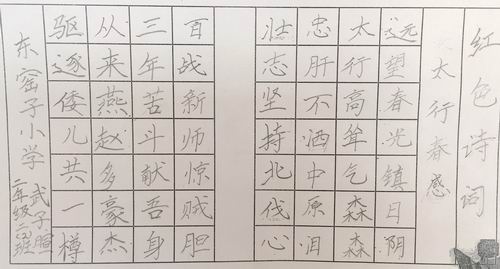 红色诗词
太行春感
远望春光镇日阴
太行高耸气森森
忠肝不洒中原泪
壮志坚持北伐心
百战新师惊贼胆
三年苦斗献吾身
从来燕赵多豪杰
驱逐倭儿共一樽
东窑子小学
二年级(二)班 武子暄